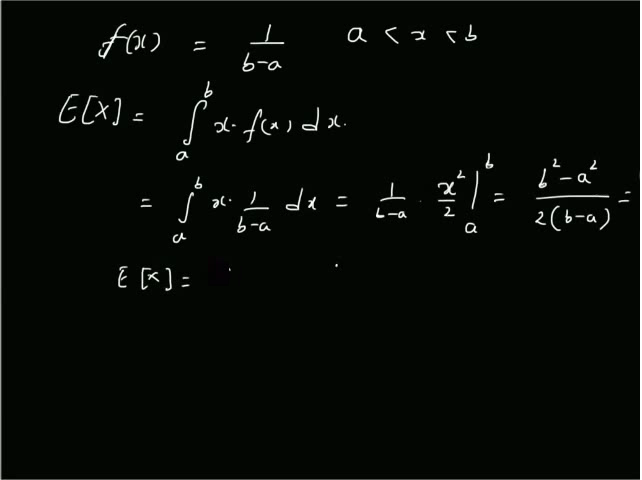 f(x) = 1/(b-a) a < x < b
E[X] = ∫_a^b x · f(x) dx.
= ∫_a^b x · 1/(b-a) dx = 1/(b-a) · x²/2 |_a^b = (b² - a²)/(2(b-a)) =
E[x] =